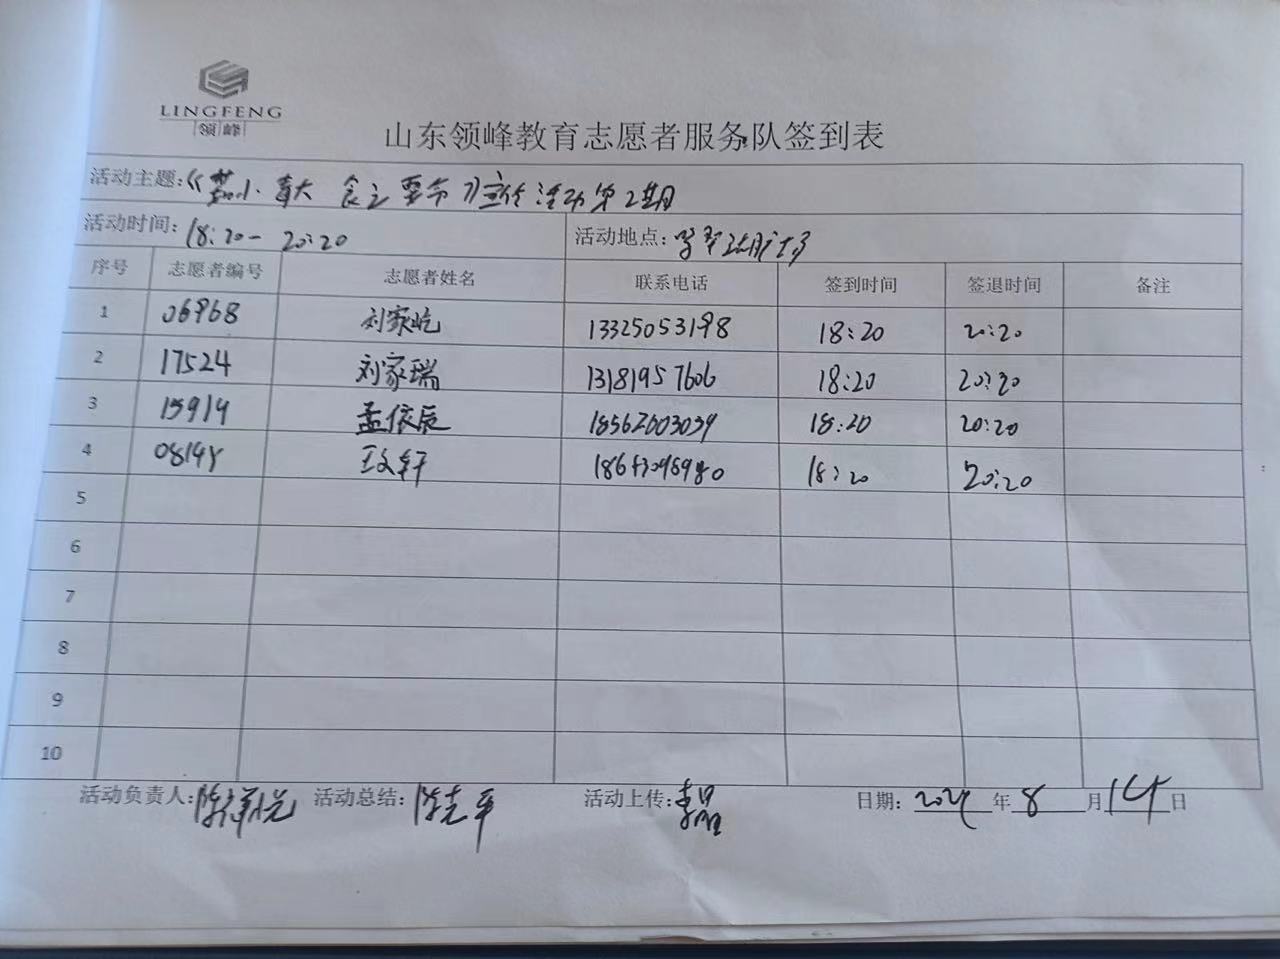 LINGFENG
领峰
山东领峰教育志愿者服务队签到表
活动主题:《 食 》宣传活动第2期
活动时间: 18:20-20:20 活动地点:
序号 志愿者编号 志愿者姓名 联系电话 签到时间 签退时间 备注
1 06968 刘家屹 13325053198 18:20 20:20
2 17524 刘家瑞 13181957606 18:20 20:20
3 15914 孟依辰 18562603039 18:20 20:20
4 轩 18:20 20:20
5
6
7
8
9
10
活动负责人: 活动总结: 活动上传: 日期: 年 8 月 14 日